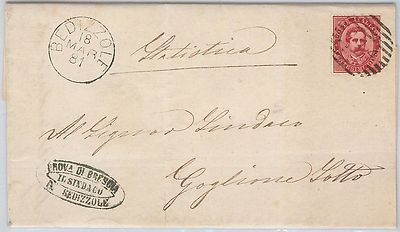 BEDIZZOLE
8
MAR
81
Statistica
POSTE ITALIANE
Al Signor Sindaco
Goglione Sotto
PROVA DI BRESCIA
IL SINDACO
BEDIZZOLE